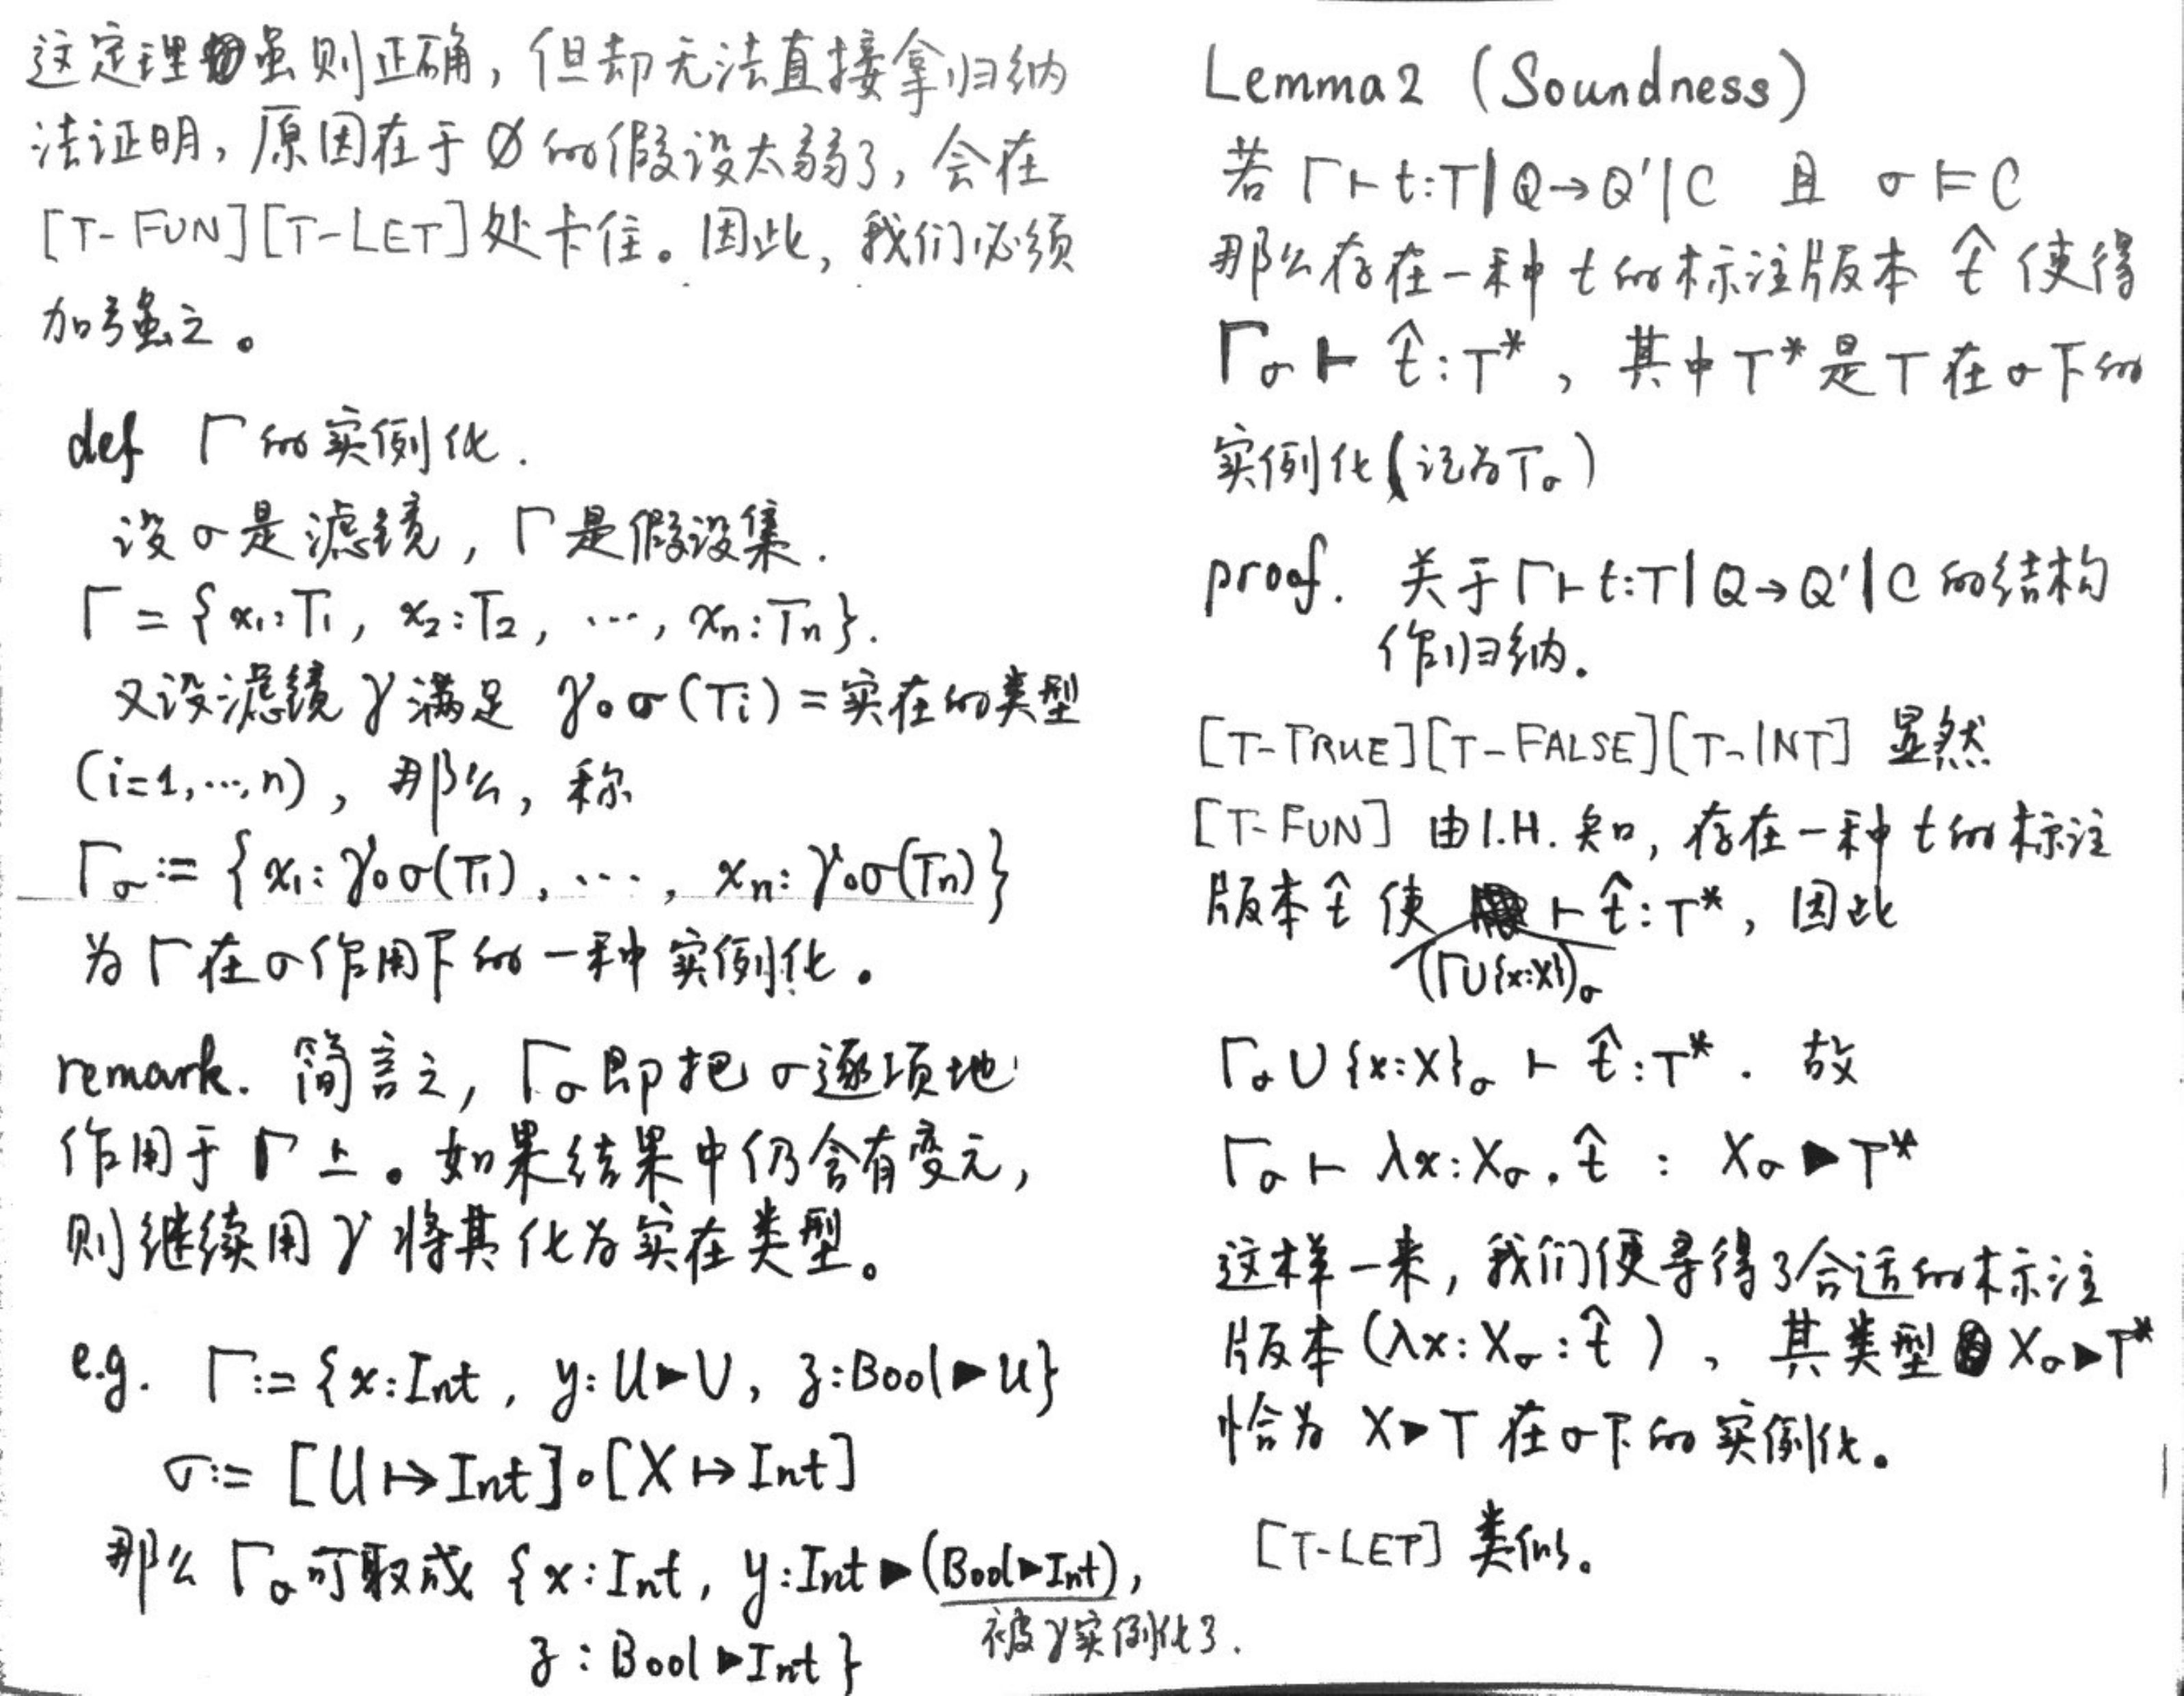 这定理虽则正确，但却无法直接拿归纳
法证明，原因在于 ∅ 的假设太弱了，会在
[T-FUN][T-LET]处卡住。因此，我们必须
加强之。
def Γ的实例化.
设σ是滤镜，Γ是假设集.
Γ = {x₁:T₁, x₂:T₂, ⋯, xₙ:Tₙ}.
又设滤镜γ满足 γ∘σ(Tᵢ) = 实在的类型
(i=1,⋯,n)，那么，称
Γσ := {x₁: γ∘σ(T₁), ⋯, xₙ: γ∘σ(Tₙ)}
为Γ在σ作用下的一种实例化。
remark. 简言之，Γσ即把σ逐项地
作用于Γ上。如果结果中仍含有变元，
则继续用γ将其化为实在类型。
e.g. Γ := {x:Int, y: U▶V, z:Bool▶U}
σ := [U ↦ Int]∘[X ↦ Int]
那么 Γσ可取成 {x:Int, y:Int▶(Bool▶Int),
被γ实例化了.
z : Bool▶Int}
Lemma 2 (Soundness)
若 Γ⊢t:T|Q→Q'|C 且 σ⊨C
那么存在一种t的标注版本 t̂ 使得
Γσ ⊢ t̂:T*，其中T*是T在σ下的
实例化(记为Tσ)
proof. 关于Γ⊢t:T|Q→Q'|C的结构
作归纳.
[T-TRUE][T-FALSE][T-INT] 显然
[T-FUN] 由I.H.知，存在一种t的标注
版本t̂ 使 ⊢ t̂:T*，因此
(Γ∪{x:X})σ
Γσ∪{x:X}σ ⊢ t̂:T*. 故
Γσ ⊢ λx:Xσ. t̂ : Xσ▶T*
这样一来，我们便寻得了合适的标注
版本(λx:Xσ:t̂)，其类型Xσ▶T*
恰为 X▶T 在σ下的实例化。
[T-LET] 类似。